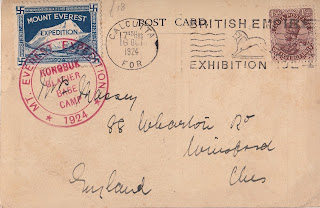 MOUNT EVEREST
EXPEDITION
1924
MT. EVEREST EXPEDITION
RONGBUK
GLACIER
BASE
CAMP
1924
CALCUTTA
18 OCT.
1924
FOR
POST CARD
BRITISH EMPIRE
EXHIBITION
Massey
88 Wharton Rd
Winsford
England
Ches